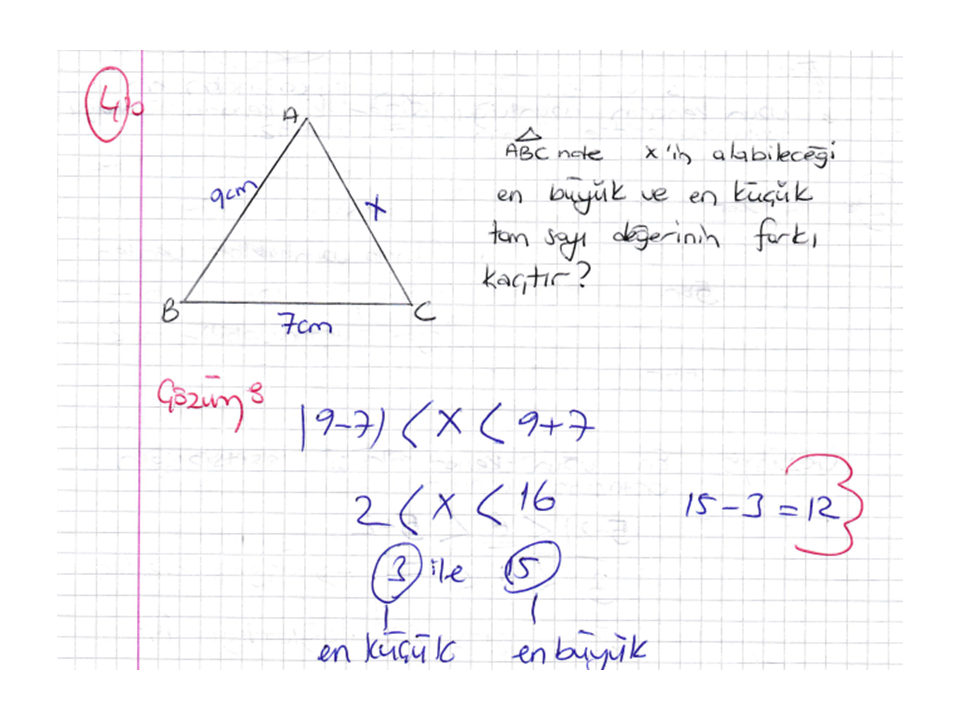 4)
A
9cm
x
B
7cm
C
ABC nde x'in alabileceği
en büyük ve en küçük
tam sayı değerinin farkı
kaçtır?
Çözüm:
|9-7| < x < 9+7
2 < x < 16
15-3=12
3 ile 15
en küçük en büyük